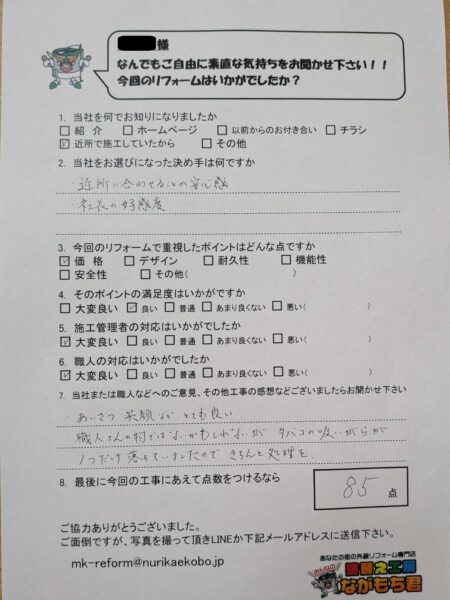 様
なんでもご自由に素直な気持ちをお聞かせ下さい！！
今回のリフォームはいかがでしたか？
1. 当社を何でお知りになりましたか
□ 紹 介 □ ホームページ □ 以前からのお付き合い □ チラシ
☑ 近所で施工していたから □ その他
2. 当社をお選びになった決め手は何ですか
・近所に合わせることの安心感
・社長の好感度
3. 今回のリフォームで重視したポイントはどんな点ですか
☑ 価 格 □ デザイン □ 耐久性 □ 機能性
□ 安全性 □ その他( )
4. そのポイントの満足度はいかがですか
□ 大変良い ☑ 良い □ 普通 □ あまり良くない □ 悪い( )
5. 施工管理者の対応はいかがでしたか
☑ 大変良い □ 良い □ 普通 □ あまり良くない □ 悪い( )
6. 職人の対応はいかがでしたか
☑ 大変良い □ 良い □ 普通 □ あまり良くない □ 悪い( )
7. 当社または職人などへのご意見、その他工事の感想などございましたらお聞かせ下さい
あいさつ 笑顔など とても良い
職人さんの物ではないかもしれないが タバコの吸いがらが
1つだけ落ちていましたので きちんと処理を
8. 最後に今回の工事にあえて点数をつけるなら
85 点
ご協力ありがとうございました。
ご面倒ですが、写真を撮って頂きLINEか下記メールアドレスに送信下さい。
mk-reform@nurikaekobo.jp
あなたの街の外装リフォーム専門店
みんなの
塗替え工房
ながもち君